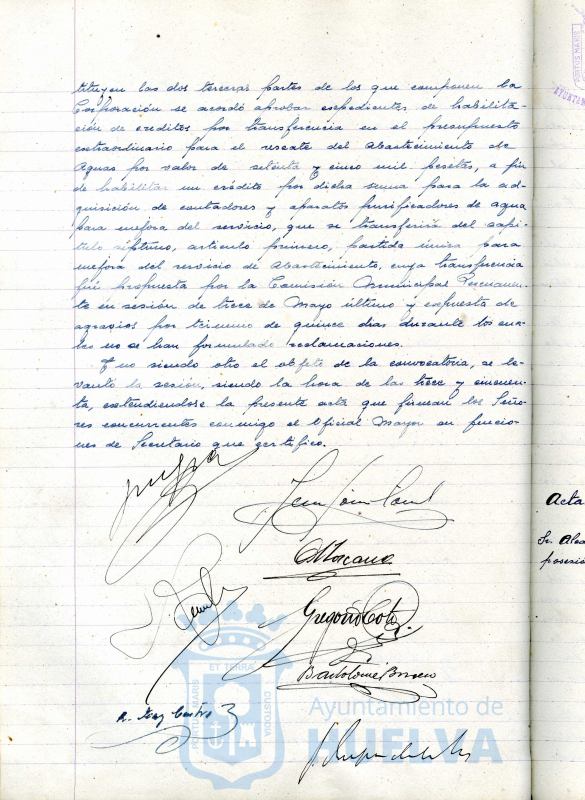 tituyen las dos terceras partes de los que componen la
Corporación se acordó aprobar expedientes de habilita-
ción de créditos por transferencia en el presupuesto
extraordinario para el rescate del Abastecimiento de
Aguas por valor de setenta y cinco mil pesetas, a fin
de habilitar un crédito por dicha suma para la ad-
quisición de contadores y aparatos purificadores de agua
para mejora del servicio, que se transferirá del capi-
tulo séptimo, articulo primero, partida única para
mejora del servicio de Abastecimiento, cuya transferencia
fué propuesta por la Comisión Municipal Permanen-
te en sesión de trece de Mayo último y expuesta de
agravios por término de quince dias durante los cua-
les no se han formulado reclamaciones.
Y no siendo otro el objeto de la convocatoria, se le-
vantó la sesión, siendo la hora de las trece y cincuen-
ta, extendiendose la presente acta que firman los Seño-
res concurrentes conmigo el Oficial Mayor en funcio-
nes de Secretario que certifico.
Gregorio
Bartolomé
Castro
Ayuntamiento de
HUELVA
PORTUS MARIS
ET TERRÆ
CUSTODIA
Acta
Sr. Alca
posesió
PORTUS MARIS
AYUNTAM